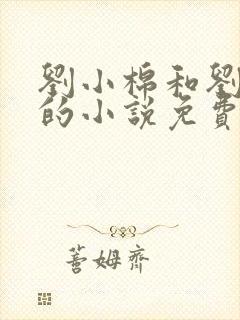 劉小棉和劉
的小說免費
善姆齊